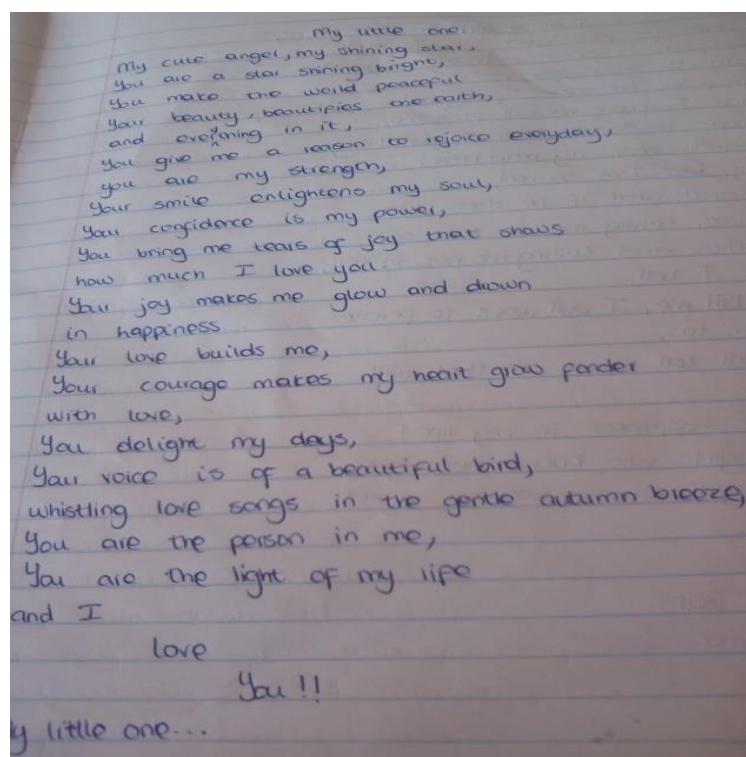 My little one.
My cute angel, my shining star,
You are a star shining bright,
You make the world peaceful
Your beauty, beautifies the earth,
and everything in it,
You give me a reason to rejoice everyday,
you are my strength,
Your smile enlightens my soul,
Your confidence is my power,
You bring me tears of joy that shows
how much I love you.
Your joy makes me glow and drown
in happiness
Your love builds me,
Your courage makes my heart grow fonder
with love,
You delight my days,
Your voice is of a beautiful bird,
whistling love songs in the gentle autumn breeze,
You are the person in me,
You are the light of my life
and I
love
You!!
y little one...